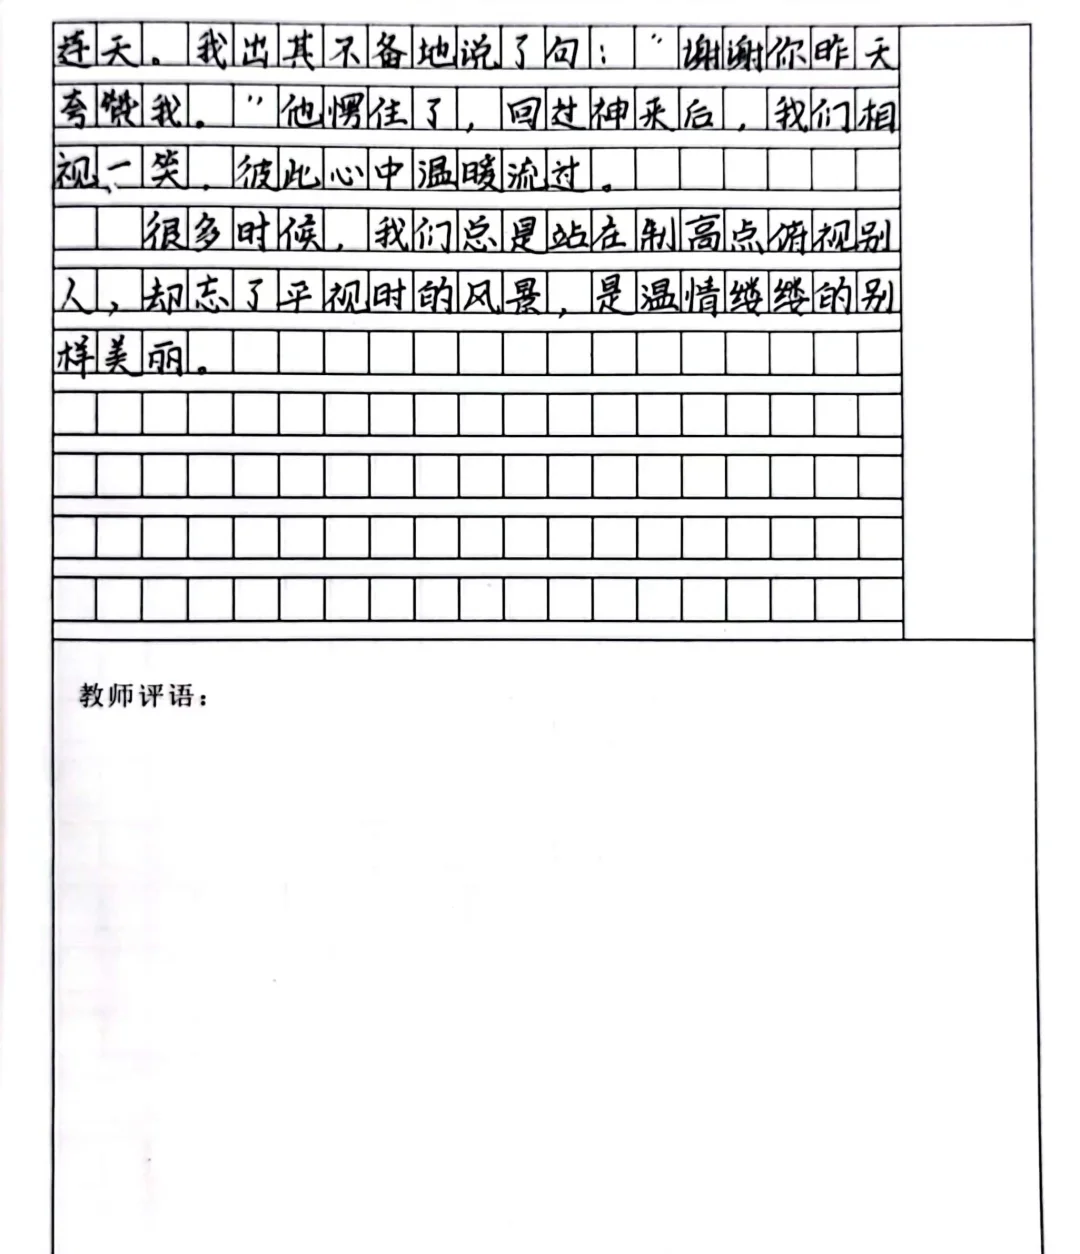 连天。我出其不备地说了句：“谢谢你昨天
夸我。”他愣住了，回过神来后，我们相
视一笑，彼此心中温暖流过。
很多时候，我们总是站在制高点俯视别
人，却忘了平视时的风景，是温情缕缕的别
样美丽。
教师评语：